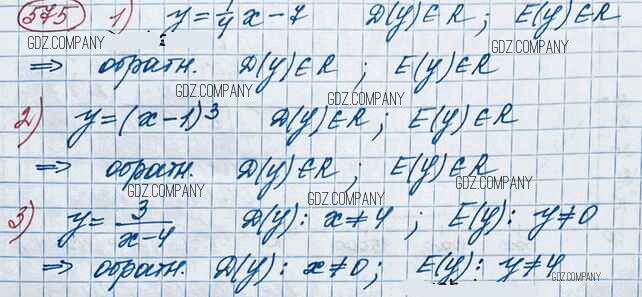 575 1) y = 1/4 x - 7 D(y) ∈ R ; E(y) ∈ R
GDZ.COMPANY GDZ.COMPANY
⇒ обратн. D(y) ∈ R ; E(y) ∈ R
GDZ.COMPANY GDZ.COMPANY
2) y = (x - 1)³ D(y) ∈ R ; E(y) ∈ R
⇒ обратн. D(y) ∈ R ; E(y) ∈ R
GDZ.COMPANY GDZ.COMPANY GDZ.COMPANY
3) y = 3/(x - 4) D(y) : x ≠ 4 ; E(y) : y ≠ 0
⇒ обратн. D(y) : x ≠ 0 ; E(y) : y ≠ 4
GDZ.COMPANY